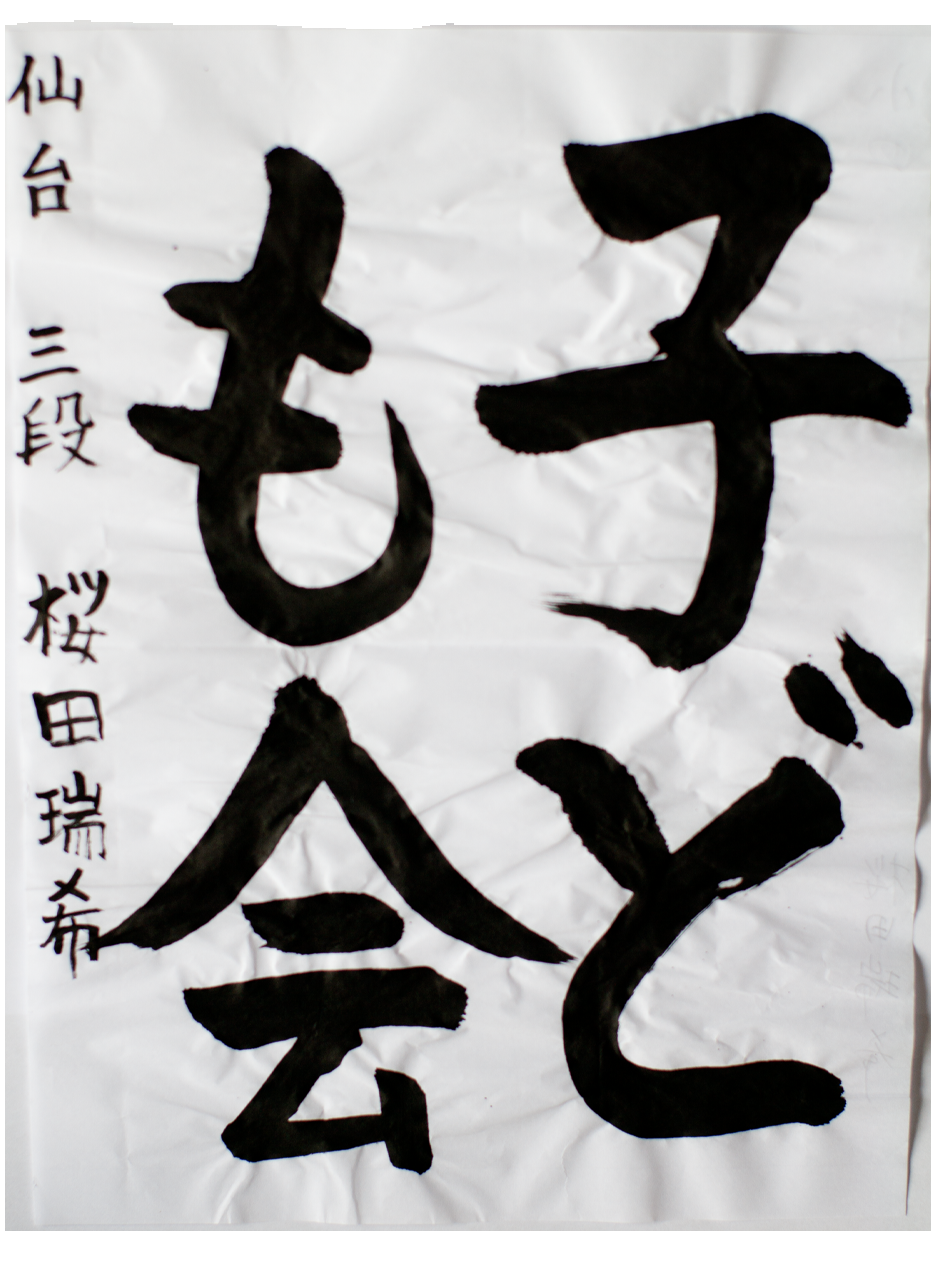 子ど
も会
仙台 三段 桜田瑞希